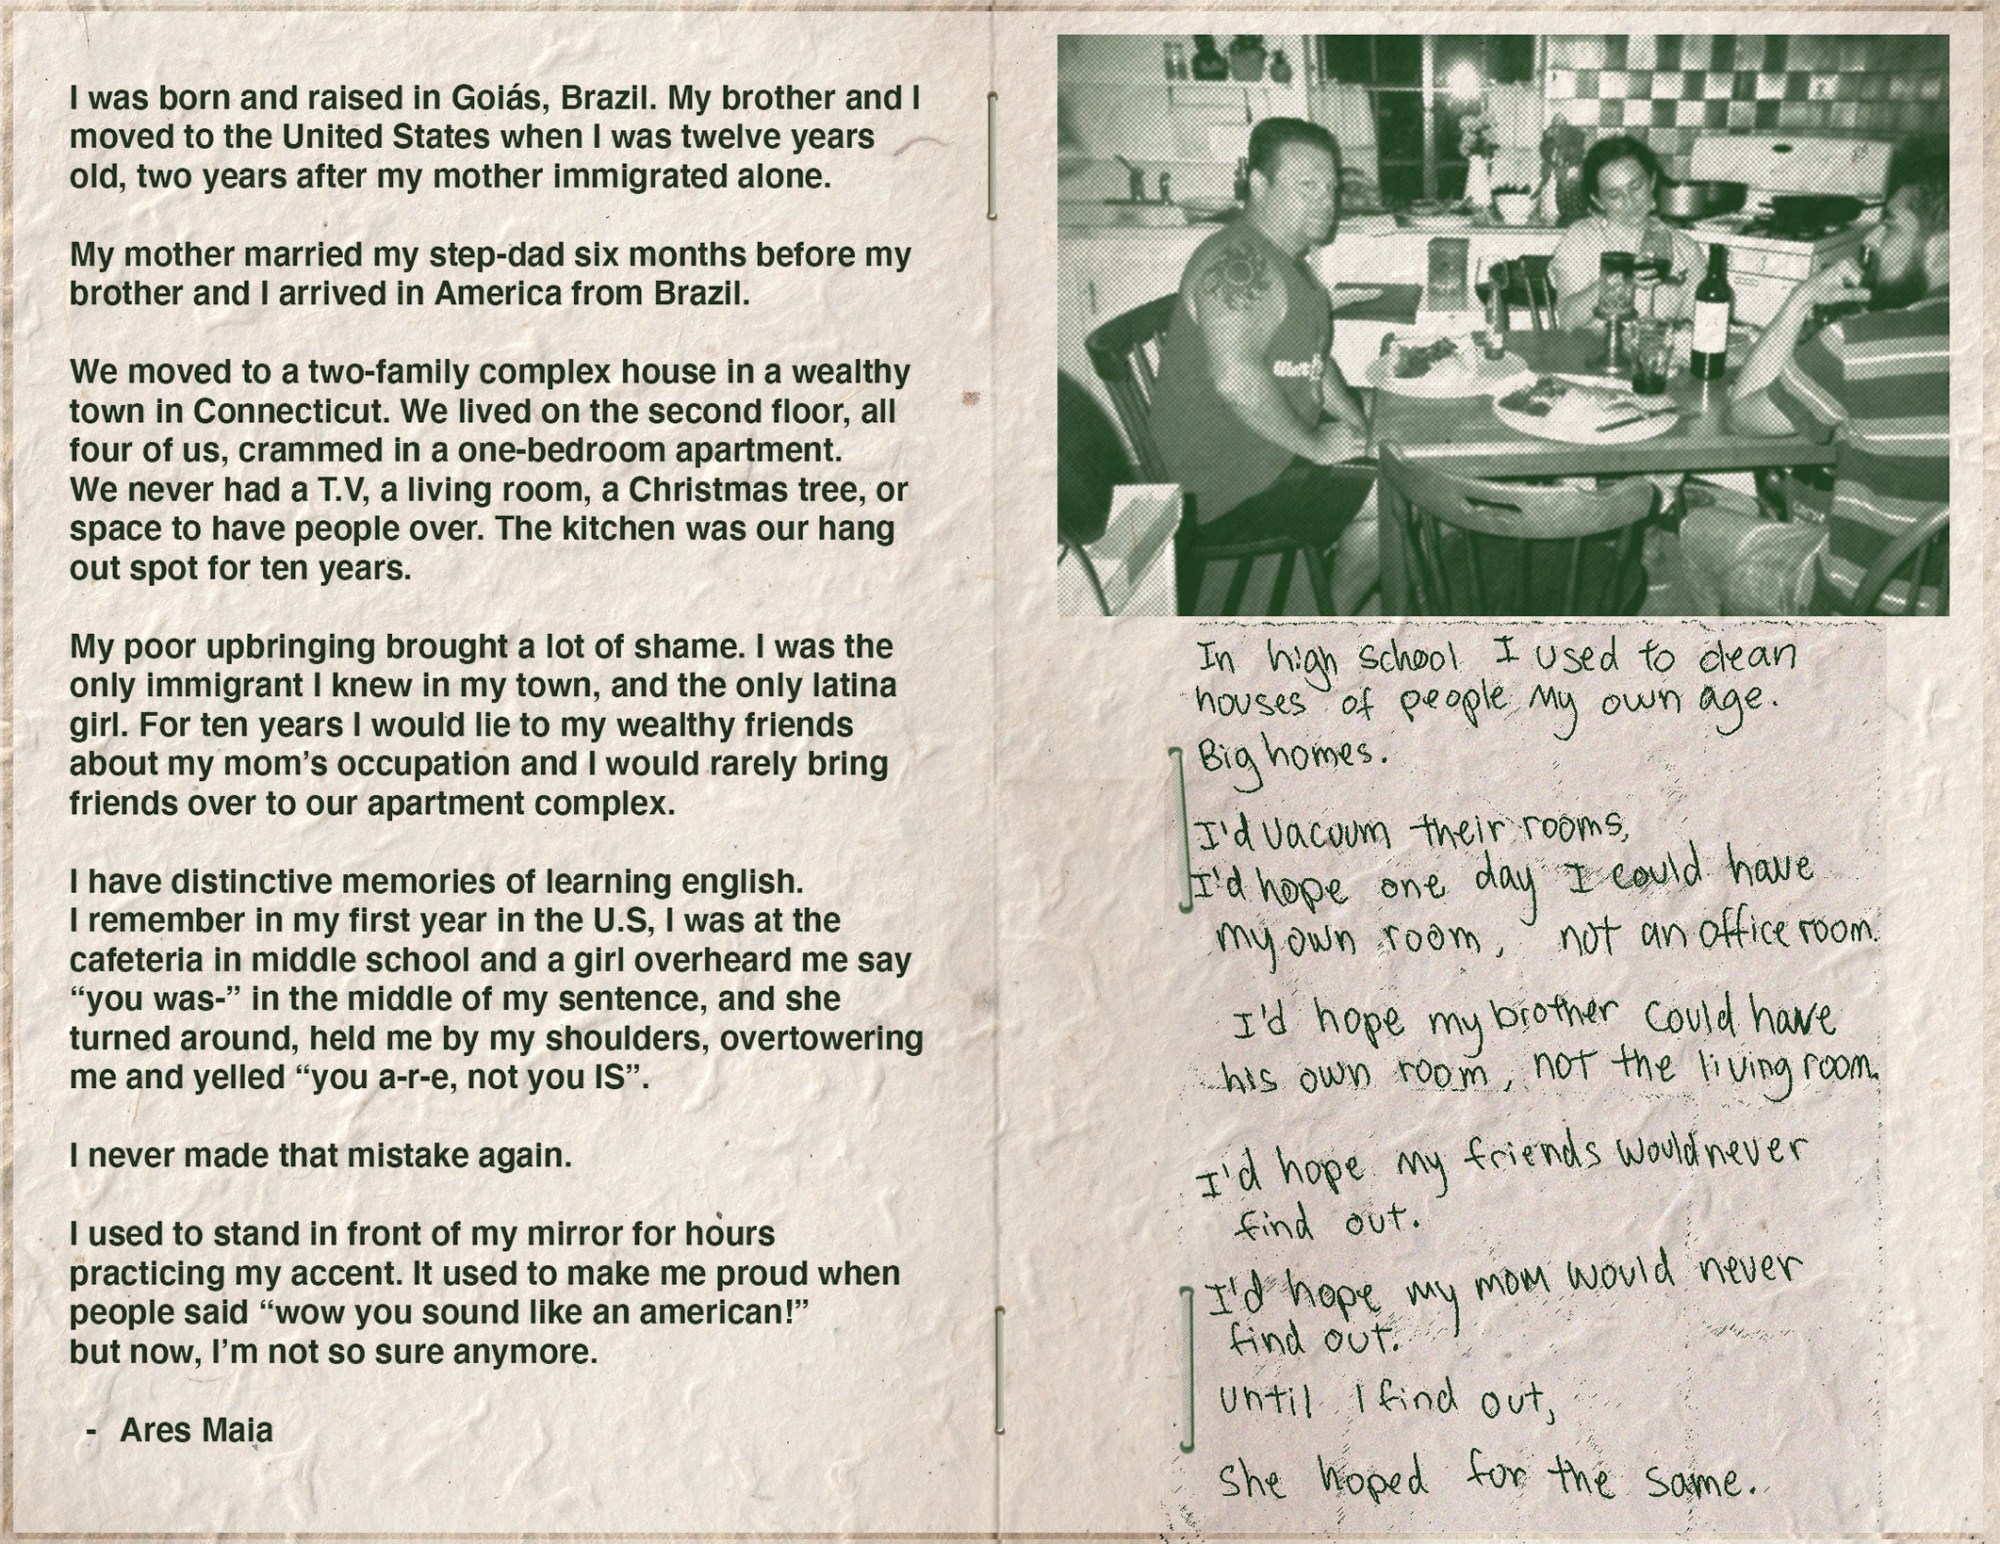 I was born and raised in Goiás, Brazil. My brother and I
moved to the United States when I was twelve years
old, two years after my mother immigrated alone.
My mother married my step-dad six months before my
brother and I arrived in America from Brazil.
We moved to a two-family complex house in a wealthy
town in Connecticut. We lived on the second floor, all
four of us, crammed in a one-bedroom apartment.
We never had a T.V, a living room, a Christmas tree, or
space to have people over. The kitchen was our hang
out spot for ten years.
My poor upbringing brought a lot of shame. I was the
only immigrant I knew in my town, and the only latina
girl. For ten years I would lie to my wealthy friends
about my mom’s occupation and I would rarely bring
friends over to our apartment complex.
I have distinctive memories of learning english.
I remember in my first year in the U.S, I was at the
cafeteria in middle school and a girl overheard me say
“you was-” in the middle of my sentence, and she
turned around, held me by my shoulders, overtowering
me and yelled “you a-r-e, not you IS”.
I never made that mistake again.
I used to stand in front of my mirror for hours
practicing my accent. It used to make me proud when
people said “wow you sound like an american!”
but now, I’m not so sure anymore.
- Ares Maia
In high school I used to clean
houses of people my own age.
Big homes.
I'd vacuum their rooms,
I'd hope one day I could have
my own room, not an office room.
I'd hope my brother could have
his own room, not the living room.
I'd hope my friends would never
find out.
I'd hope my mom would never
find out.
until I find out,
She hoped for the same.